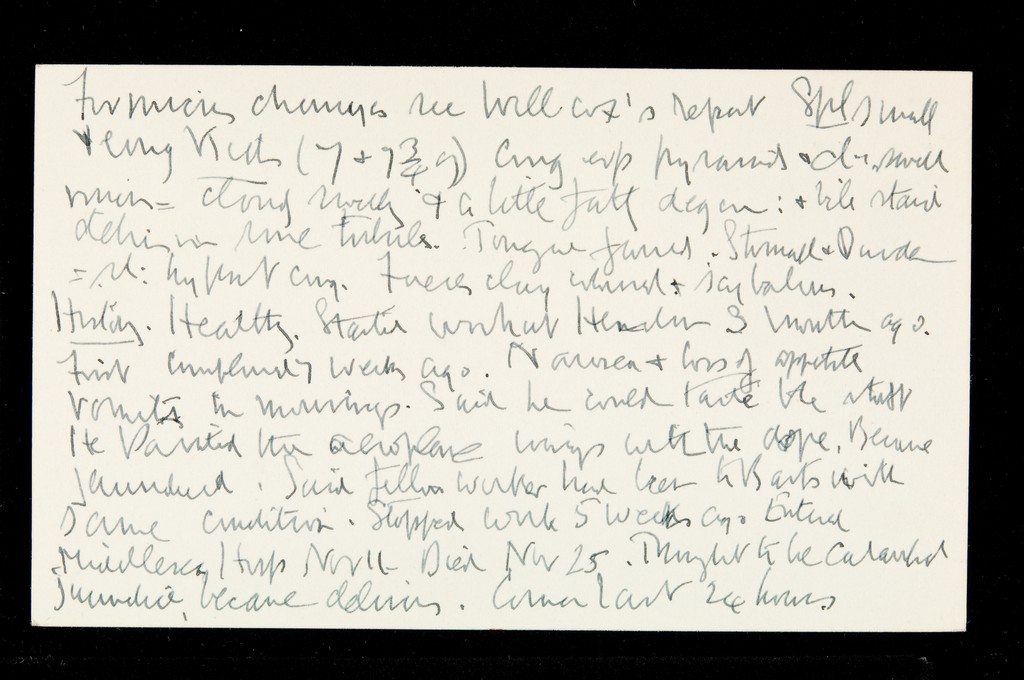 For micros changes see Willcox's report Spl small
& cong Kids (7 + 7 3/4 oz) cong esp pyramids +
micro = cloudy & a little fatty degen: + bile staind
debris in some tubules. Tongue furred. Stomach + Duoden
= sl: hypost cong. Faeces clay colourd + scybalous.
History. Healthy. Started work at Hendon 3 months ago.
First complained 7 weeks ago. Nausea + loss of appetite
vomits in mornings. Said he could taste the stuff
He Painted the aeroplane wings with the dope. Became
jaundiced. Said fellow worker had been to Barts with
same condition. Stopped work 5 weeks ago Entered
Middlesex Hosp Nov 11 Died Nov 25. Thought to be catarrhal
Jaundice, became delirious. Coma last 24 hours